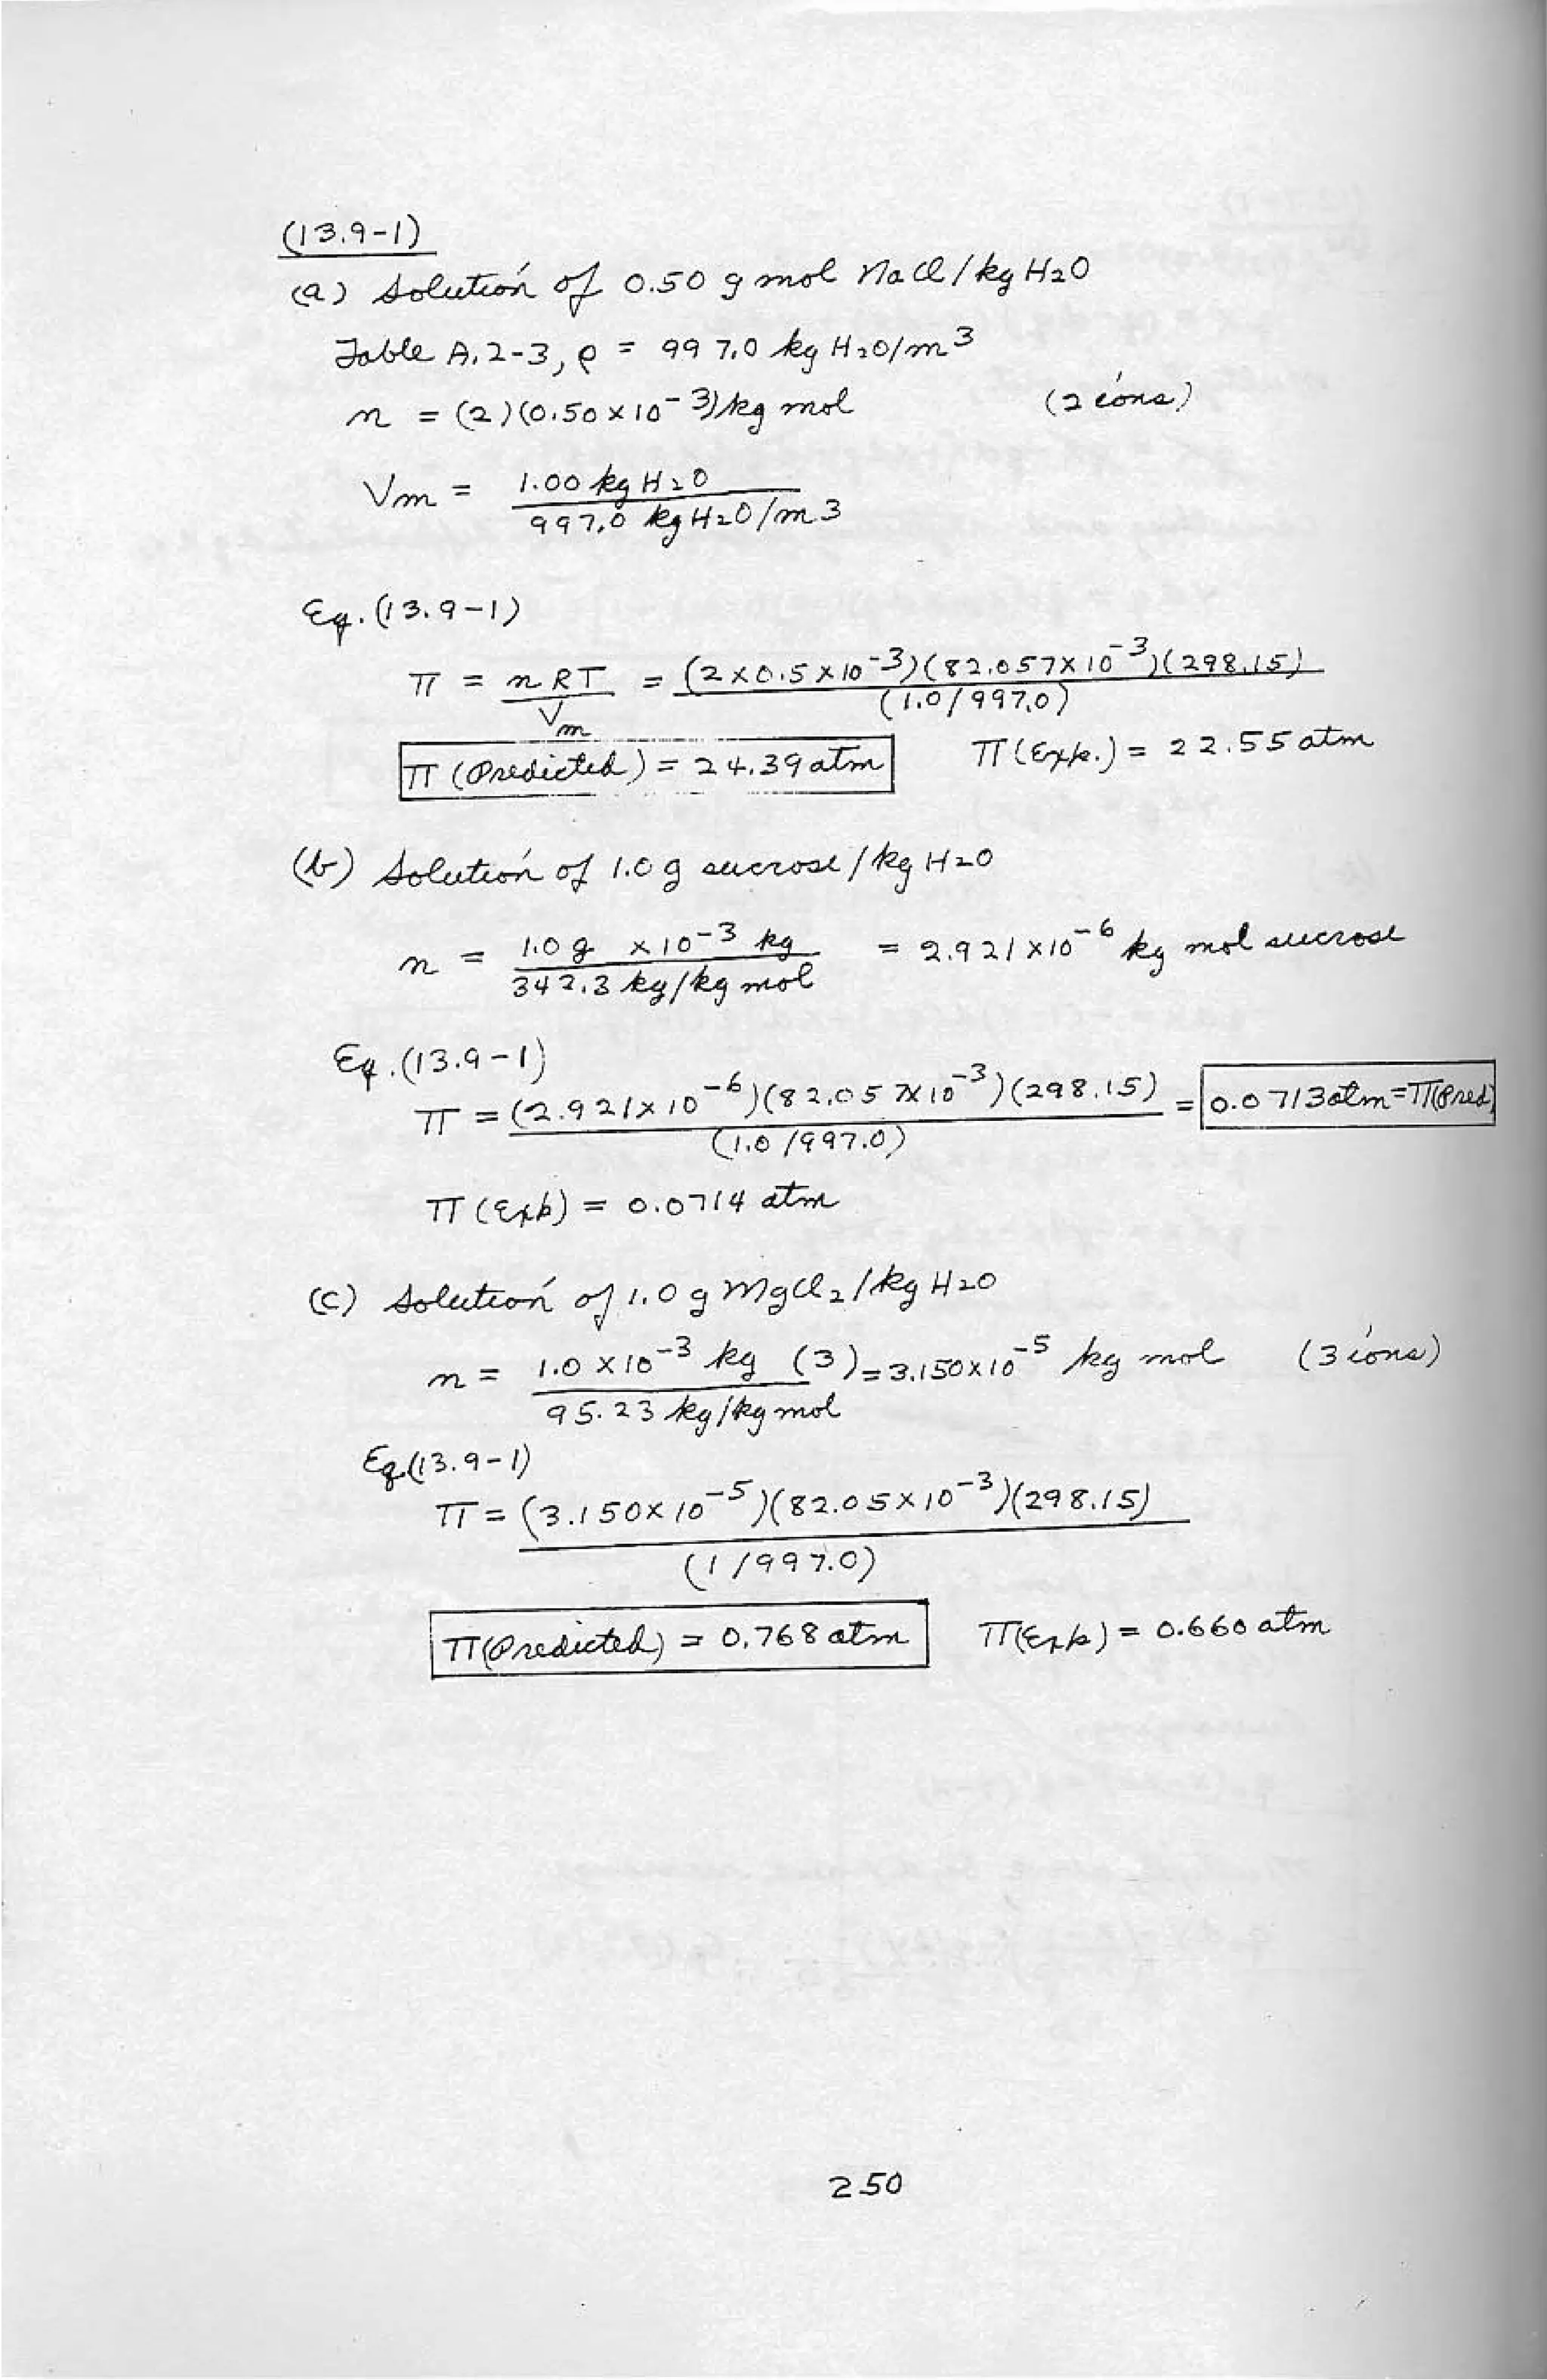 (13.9-1)
(a) Solution of 0.50 g mol NaCl/kg H2O
Table A.2-3, ρ = 997.0 kg H2O/m3
n = (2)(0.50×10-3) kg mol (2 ions)
Vm = 1.00 kg H2O
997.0 kg H2O/m3
Eq. (13.9-1)
π = nRT = (2×0.5×10-3)(82.057×10-3)(298.15)
Vm (1.0/997.0)
π (Predicted) = 24.39 atm π (Exp.) = 22.55 atm
(b) Solution of 1.0 g sucrose/kg H2O
n = 1.0 g ×10-3 kg = 2.921×10-6 kg mol sucrose
342.3 kg/kg mol
Eq. (13.9-1)
π = (2.921×10-6)(82.057×10-3)(298.15) = 0.0713 atm = π(Pred)
(1.0/997.0)
π (Exp) = 0.0714 atm
(c) Solution of 1.0 g MgCl2/kg H2O
n = 1.0×10-3 kg (3) = 3.150×10-5 kg mol (3 ions)
95.23 kg/kg mol
Eq. (13.9-1)
π = (3.150×10-5)(82.05×10-3)(298.15)
(1/997.0)
π(Predicted) = 0.768 atm π(Exp) = 0.660 atm
250